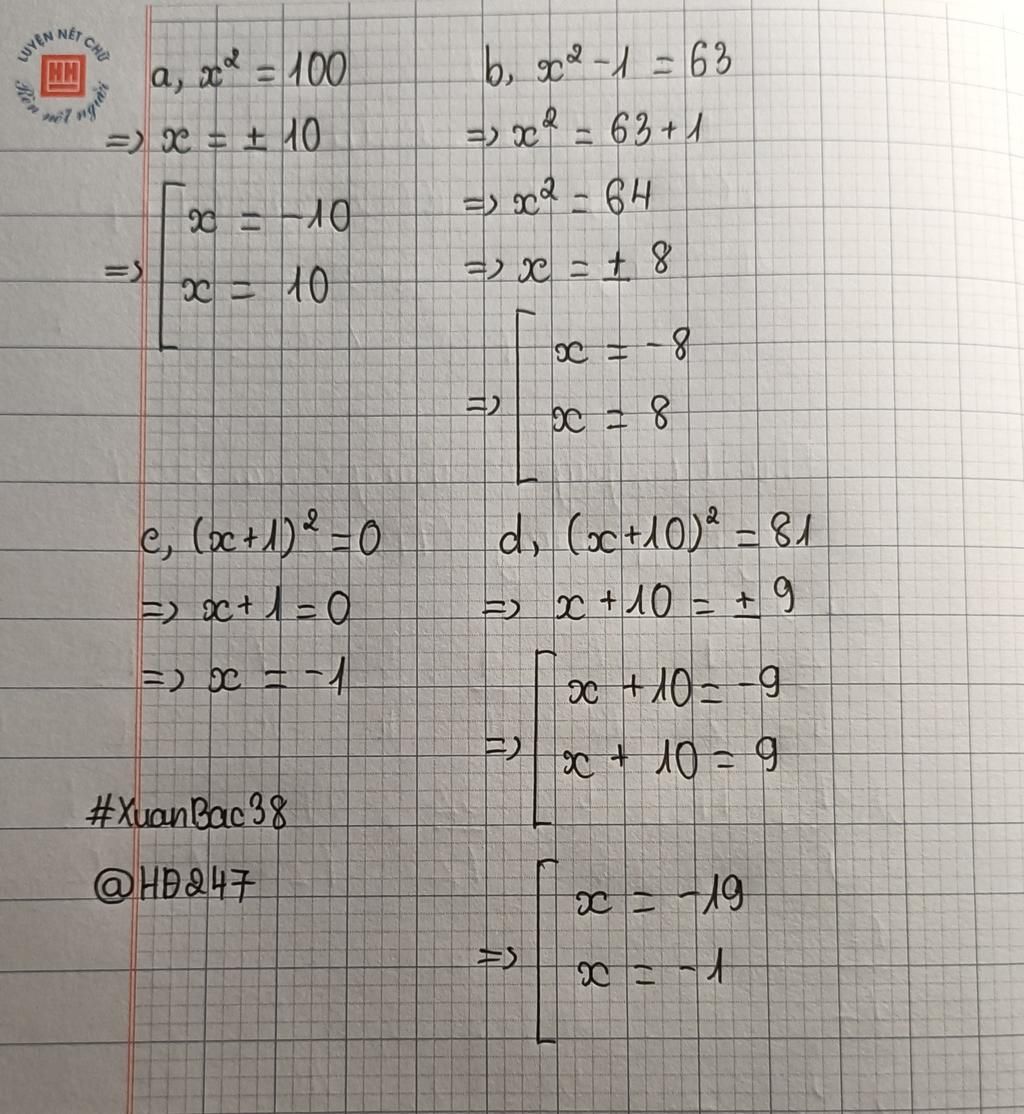 LUYỆN NÉT CHỮ
Rèn nết người
a, x² = 100
=> x = ± 10
=> [ x = -10
x = 10
b, x² - 1 = 63
=> x² = 63 + 1
=> x² = 64
=> x = ± 8
=> [ x = -8
x = 8
c, (x+1)² = 0
=> x + 1 = 0
=> x = -1
d, (x+10)² = 81
=> x + 10 = ± 9
=> [ x + 10 = -9
x + 10 = 9
=> [ x = -19
x = -1
#XuanBac38
@HĐ247